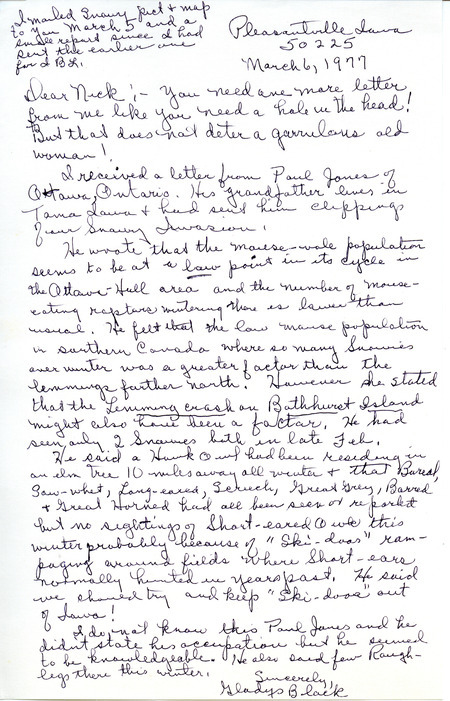 I mailed Snowy pict & map
to you March 5 and a
small report since I had
sent the earlier one
for I B L.
Pleasantville Iowa
50225
March 6, 1977
Dear Nick!- You need one more letter
from me like you need a hole in the head!
But that does not deter a garrulous old
woman!
I received a letter from Paul Jones of
Ottawa, Ontario. His grandfather lives in
Tama Iowa & had sent him clippings
of our Snowy Invasion.
He wrote that the mouse-vole population
seems to be at a low point in its cycle in
the Ottawa-Hull area and the number of mouse-
eating raptors wintering there is lower than
usual. He felt that the low mouse population
in southern Canada where so many Snowies
over winter was a greater factor than the
lemmings farther north. However he stated
that the Lemming crash on Bathhurst Island
might also have been a factor. He had
seen only 2 Snowies both in late Feb.
He said a Hawk Owl had been residing in
an elm tree 10 miles away all winter & that Boreal,
Saw-whet, Long-eared, Screech, Great Grey, Barred
& Great Horned had all been seen or reported
but no sightings of Short-eared Owls this
winter probably because of "Ski-doos" ram-
paging around fields where Short-ears
normally hunted in years past. He said
we should try and keep "Ski-doos" out
of Iowa!
I do not know this Paul Jones and he
didn't state his occupation but he seemed
to be knowledgeable. He also said few Rough-
legs there this winter.
Sincerely,
Gladys Black